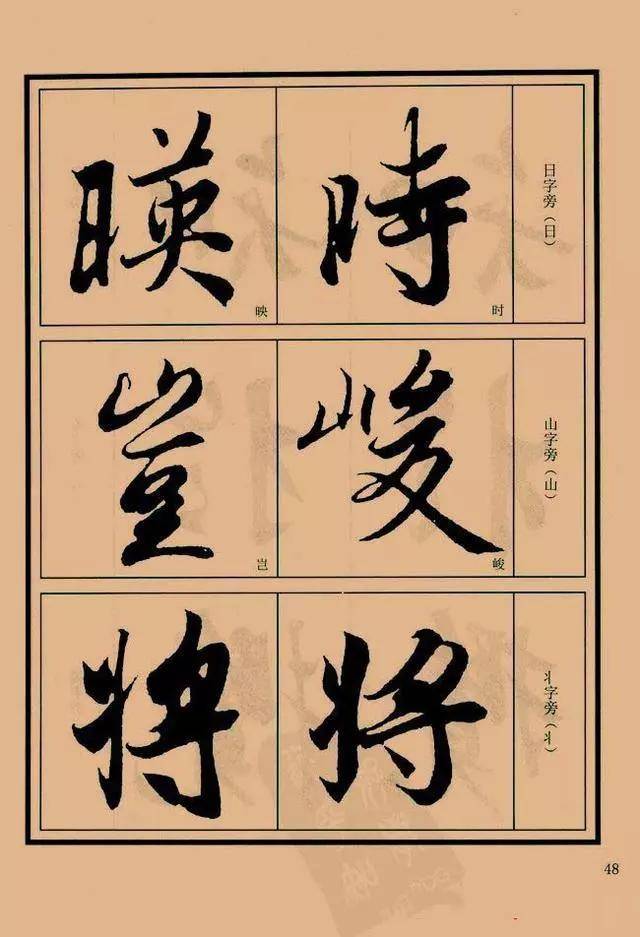 日字旁（日）
時
时
暎
映
山字旁（山）
峻
峻
豈
岂
丬字旁（丬）
將
將
48